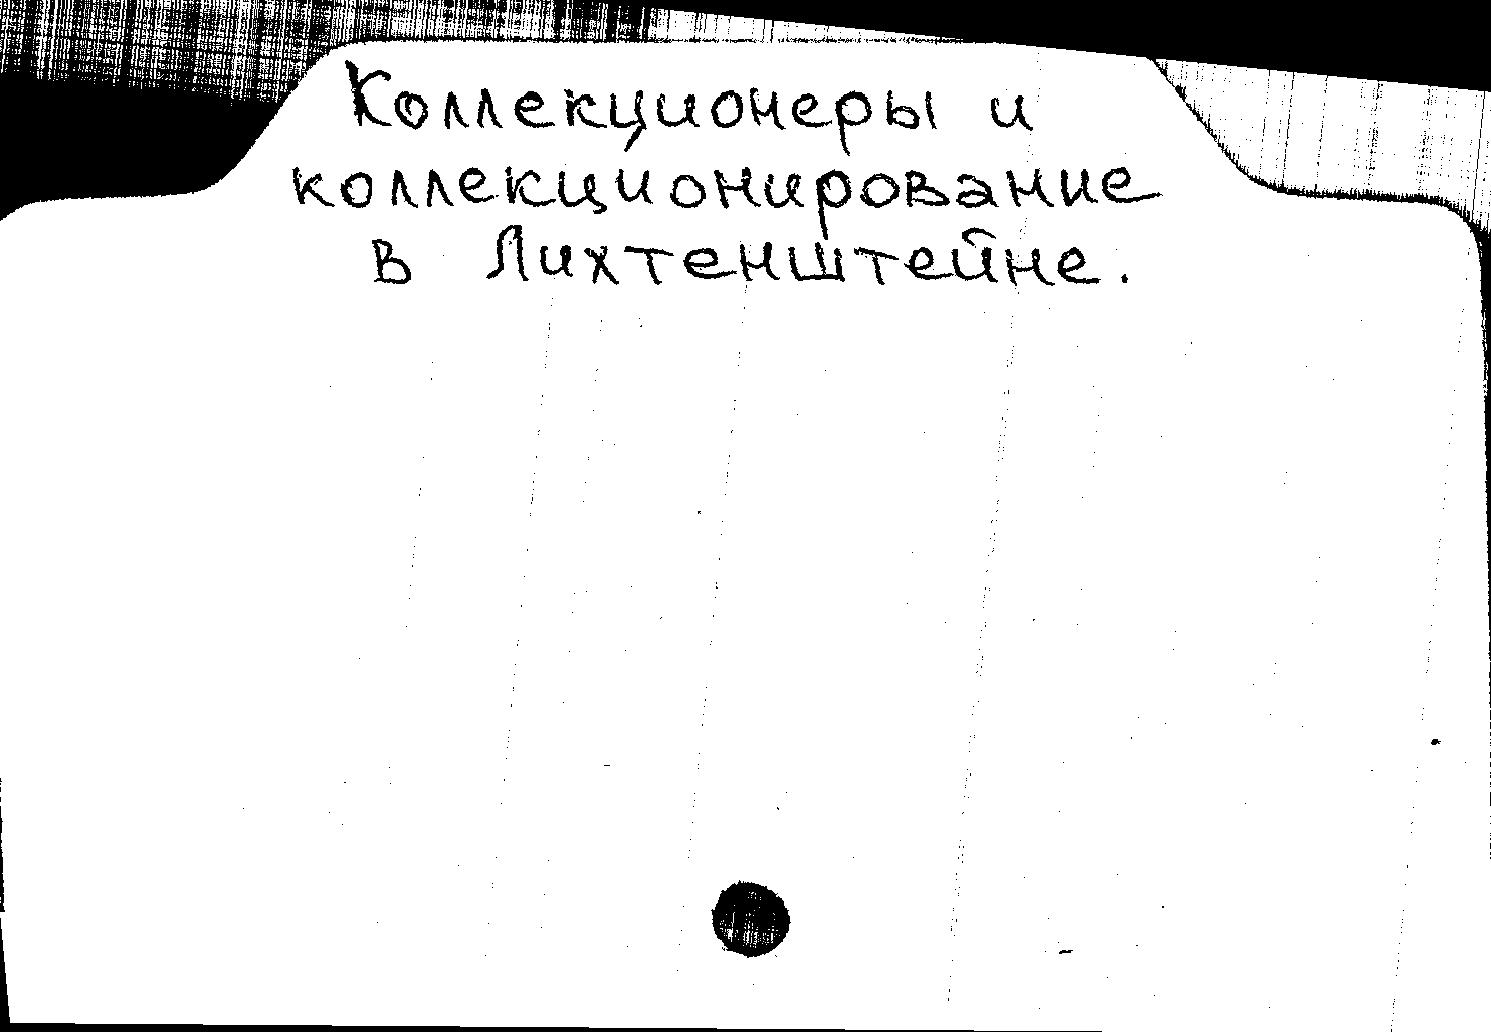 Коллекционеры и
коллекционирование
в Лихтенштейне.